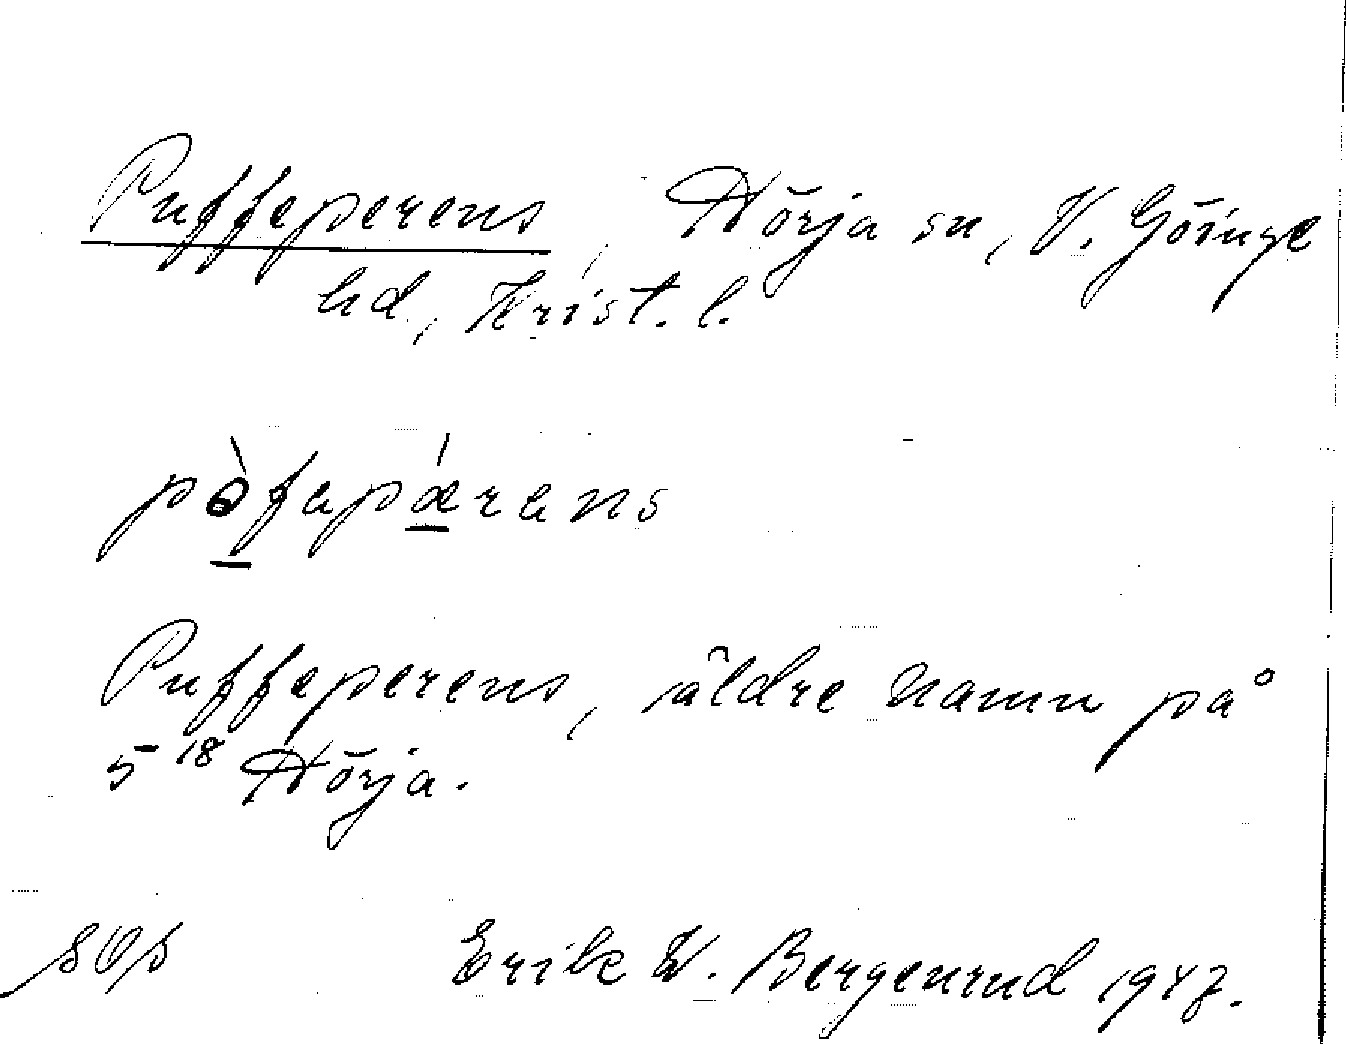 Puffeperens, Hörja sn, V. Göinge
hd, Krist. l.
pòfapǽrans
Puffeperens, äldre namn på
5¹⁸ Hörja.
Erik W. Bergenrud 1947.